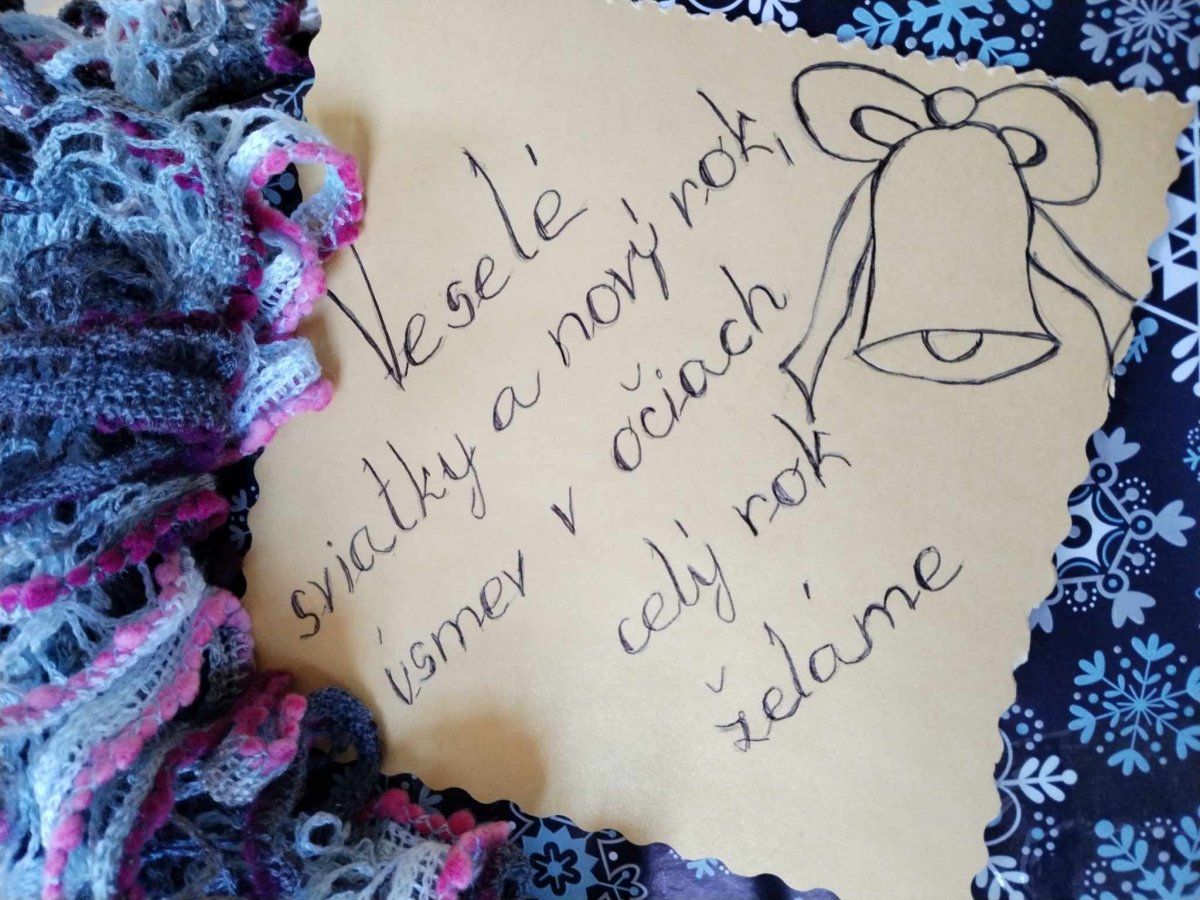 Veselé
sviatky a nový rok,
úsmev v očiach
celý rok
želáme